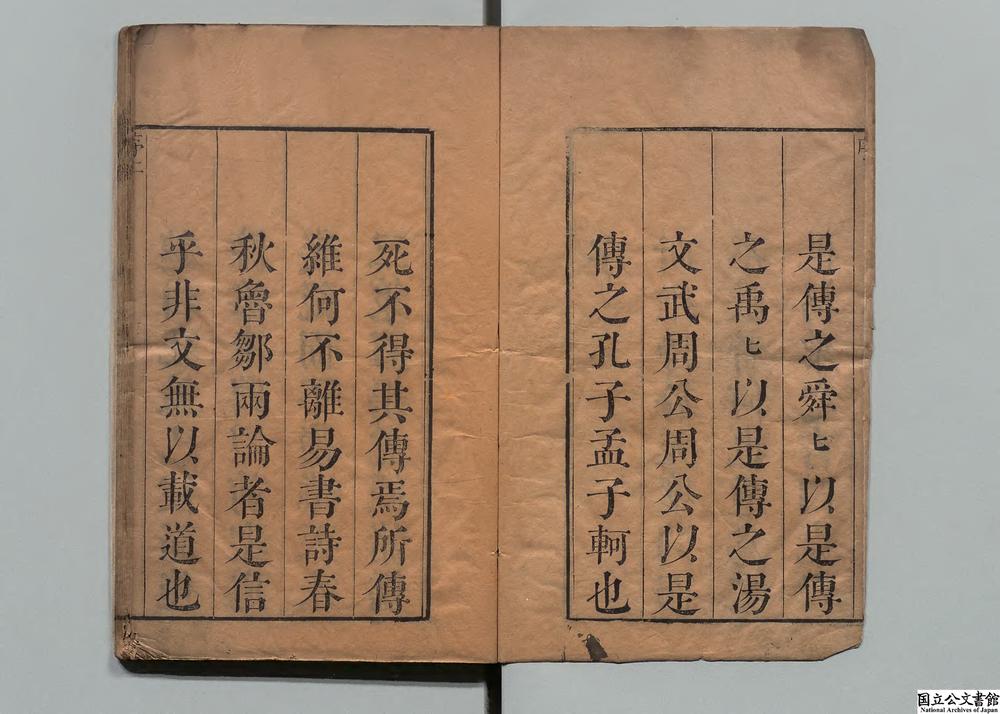 是傳之舜〻以是傳
之禹〻以是傳之湯
文武周公周公以是
傳之孔子孟子軻也
死不得其傳焉所傳
維何不離易書詩春
秋魯鄒兩論者是信
乎非文無以載道也
序二
国立公文書館
National Archives of Japan